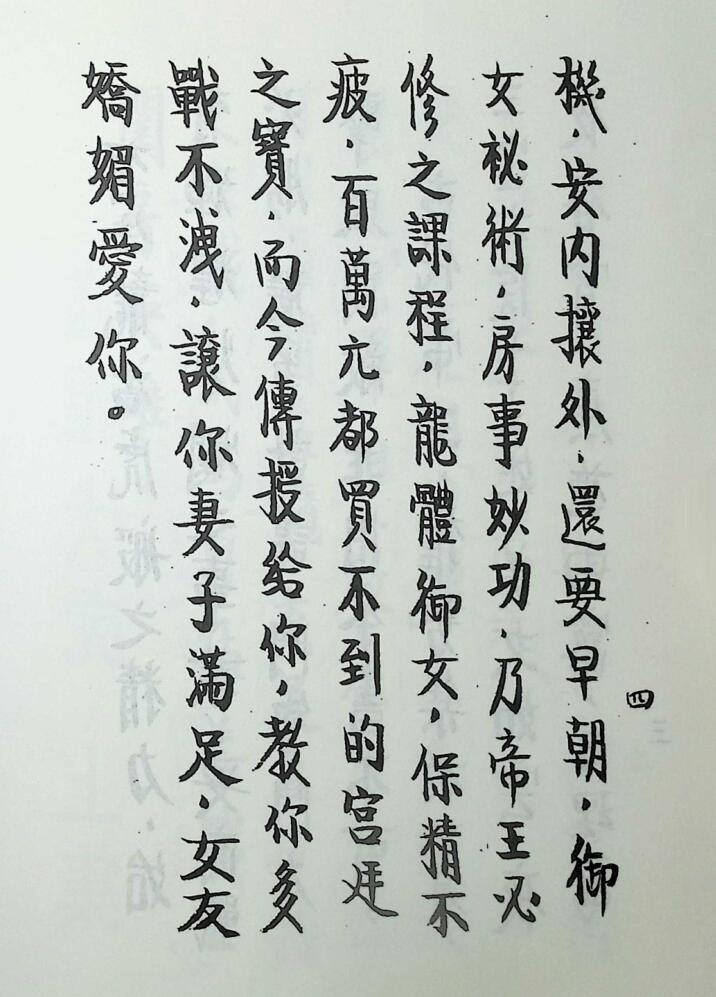 機，安內攘外，還要早朝，御
女祕術，房事妙功，乃帝王必
修之課程，龍體御女，保精不
疲，百萬元都買不到的宮廷
之寶，而今傳授給你，教你多
戰不洩，讓你妻子滿足，女友
嬌媚愛你。
四